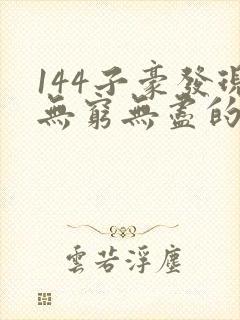 144子豪發現
無窮無盡的
雲若浮塵